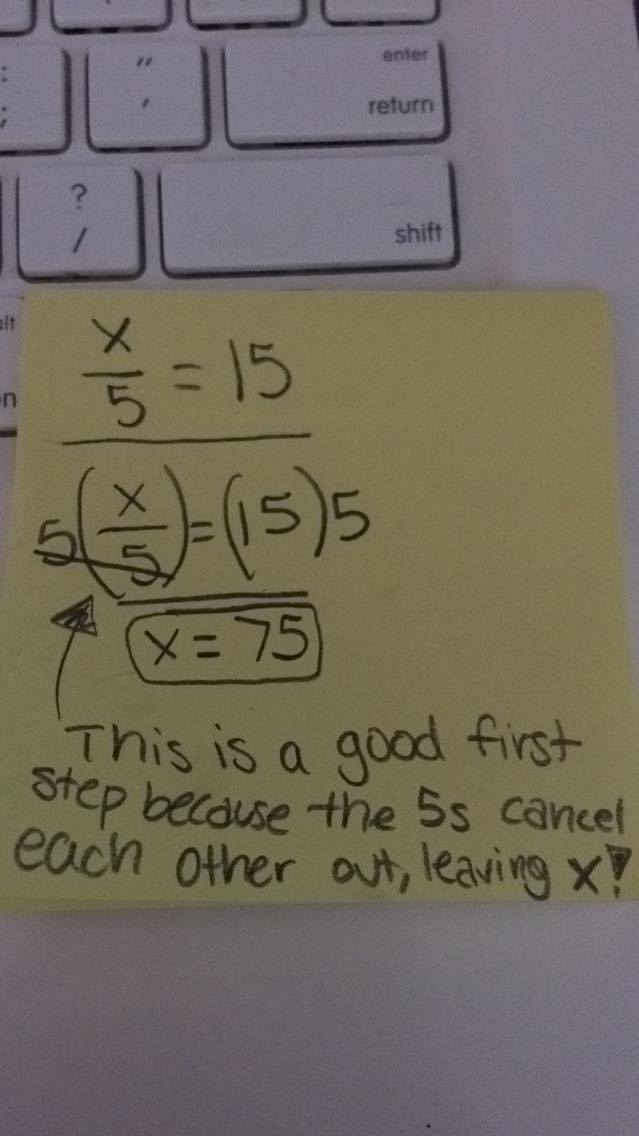 enter
: " return
; '
? shift
/
alt
x/5 = 15
5(x/5) = (15)5
x = 75
This is a good first
step because the 5s cancel
each other out, leaving x!